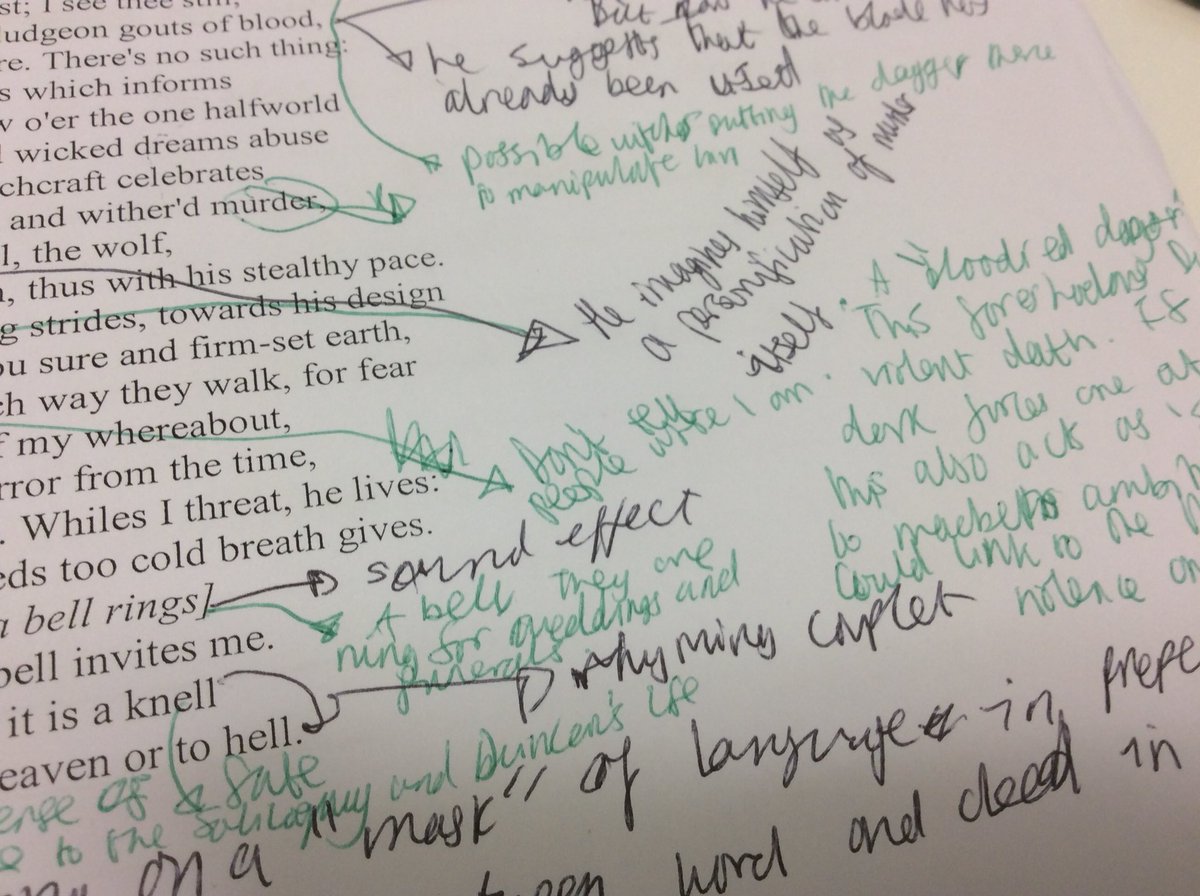 st; I see thee still,
udgeon gouts of blood,
re. There's no such thing:
s which informs
w o'er the one halfworld
wicked dreams abuse
chcraft celebrates
and wither'd murder,
l, the wolf,
, thus with his stealthy pace.
g strides, towards his design
ou sure and firm-set earth,
ch way they walk, for fear
f my whereabout,
rror from the time,
. Whiles I threat, he lives:
eds too cold breath gives.
a bell rings]
bell invites me.
it is a knell
eaven or to hell.
But now he
he suggests that the blade has
already been used
possible witches putting the dagger there
to manipulate him
He imagines himself as
a personification of murder
itself
Don't tell
people where I am.
sound effect
A bell they are
rung for weddings and
funerals
rhyming couplet
A bloodied dagger
This foreshadows
violent death. If
dark forces are at
this also acts as
to macbeths ambit
Could link to the
violence on
ense of a fate
to the soliloquy and Duncan's life
on a "mask" of language in prepe
een word and deed in